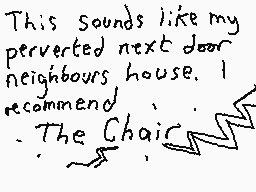 This sounds like my
perverted next door
neighbours house. I
recommend
The Chair